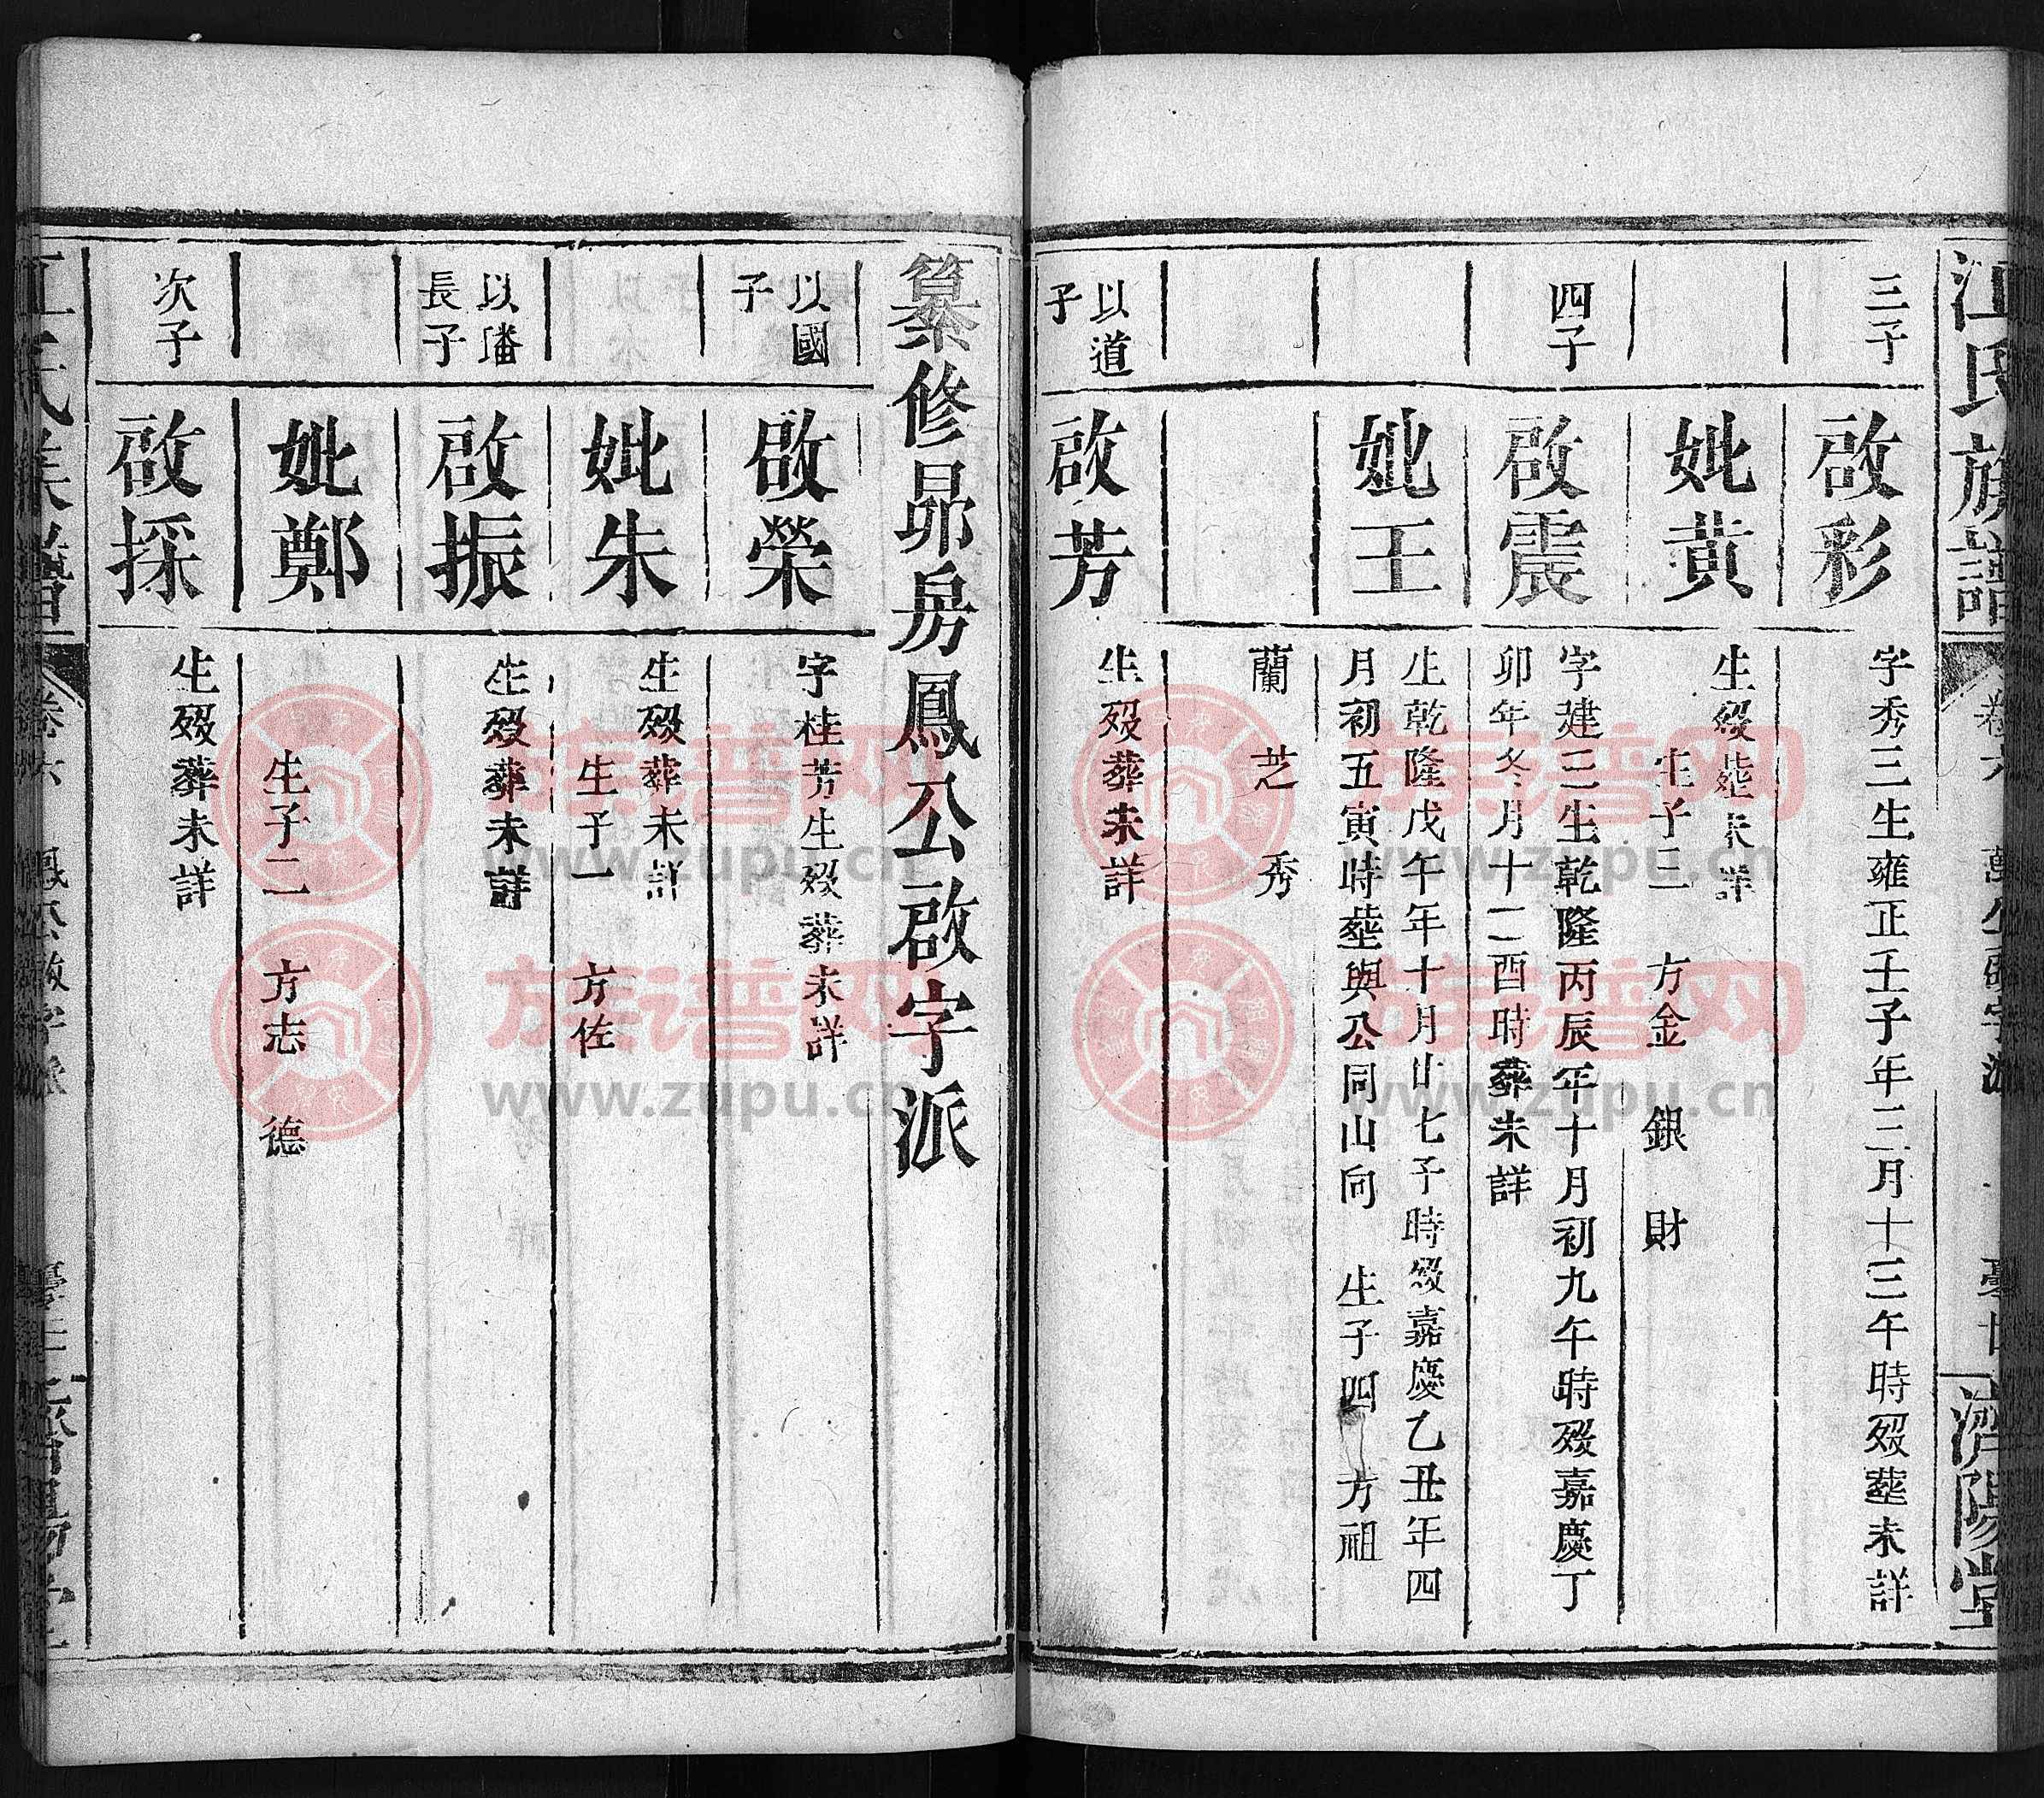 江氏族譜
卷六
濟陽堂
三子
啟彩
字秀三生雍正壬子年三月十三午時歿塟未詳
妣黄
生歿塟未詳
生子三　方金　銀　財
四子
啟震
字建三生乾隆丙辰年十月初九午時歿嘉慶丁
卯年冬月十二酉時葬未詳
妣王
生乾隆戊午年十月廿七子時歿嘉慶乙丑年四
月初五寅時塟與公同山向　生子四　方祖
蘭　芝　秀
以道
子
啟芳
生歿葬未詳
纂修昴房鳳公啟字派
以國
子
啟榮
字桂芳生歿葬未詳
妣朱
生歿葬未詳
生子一　方佐
以璠
長子
啟振
生歿葬未詳
妣鄭
生子二　方志　德
次子
啟採
生歿葬未詳
卷六
族谱网
www.zupu.cn
族谱网
www.zupu.cn
族谱网
www.zupu.cn
族谱网
www.zupu.cn